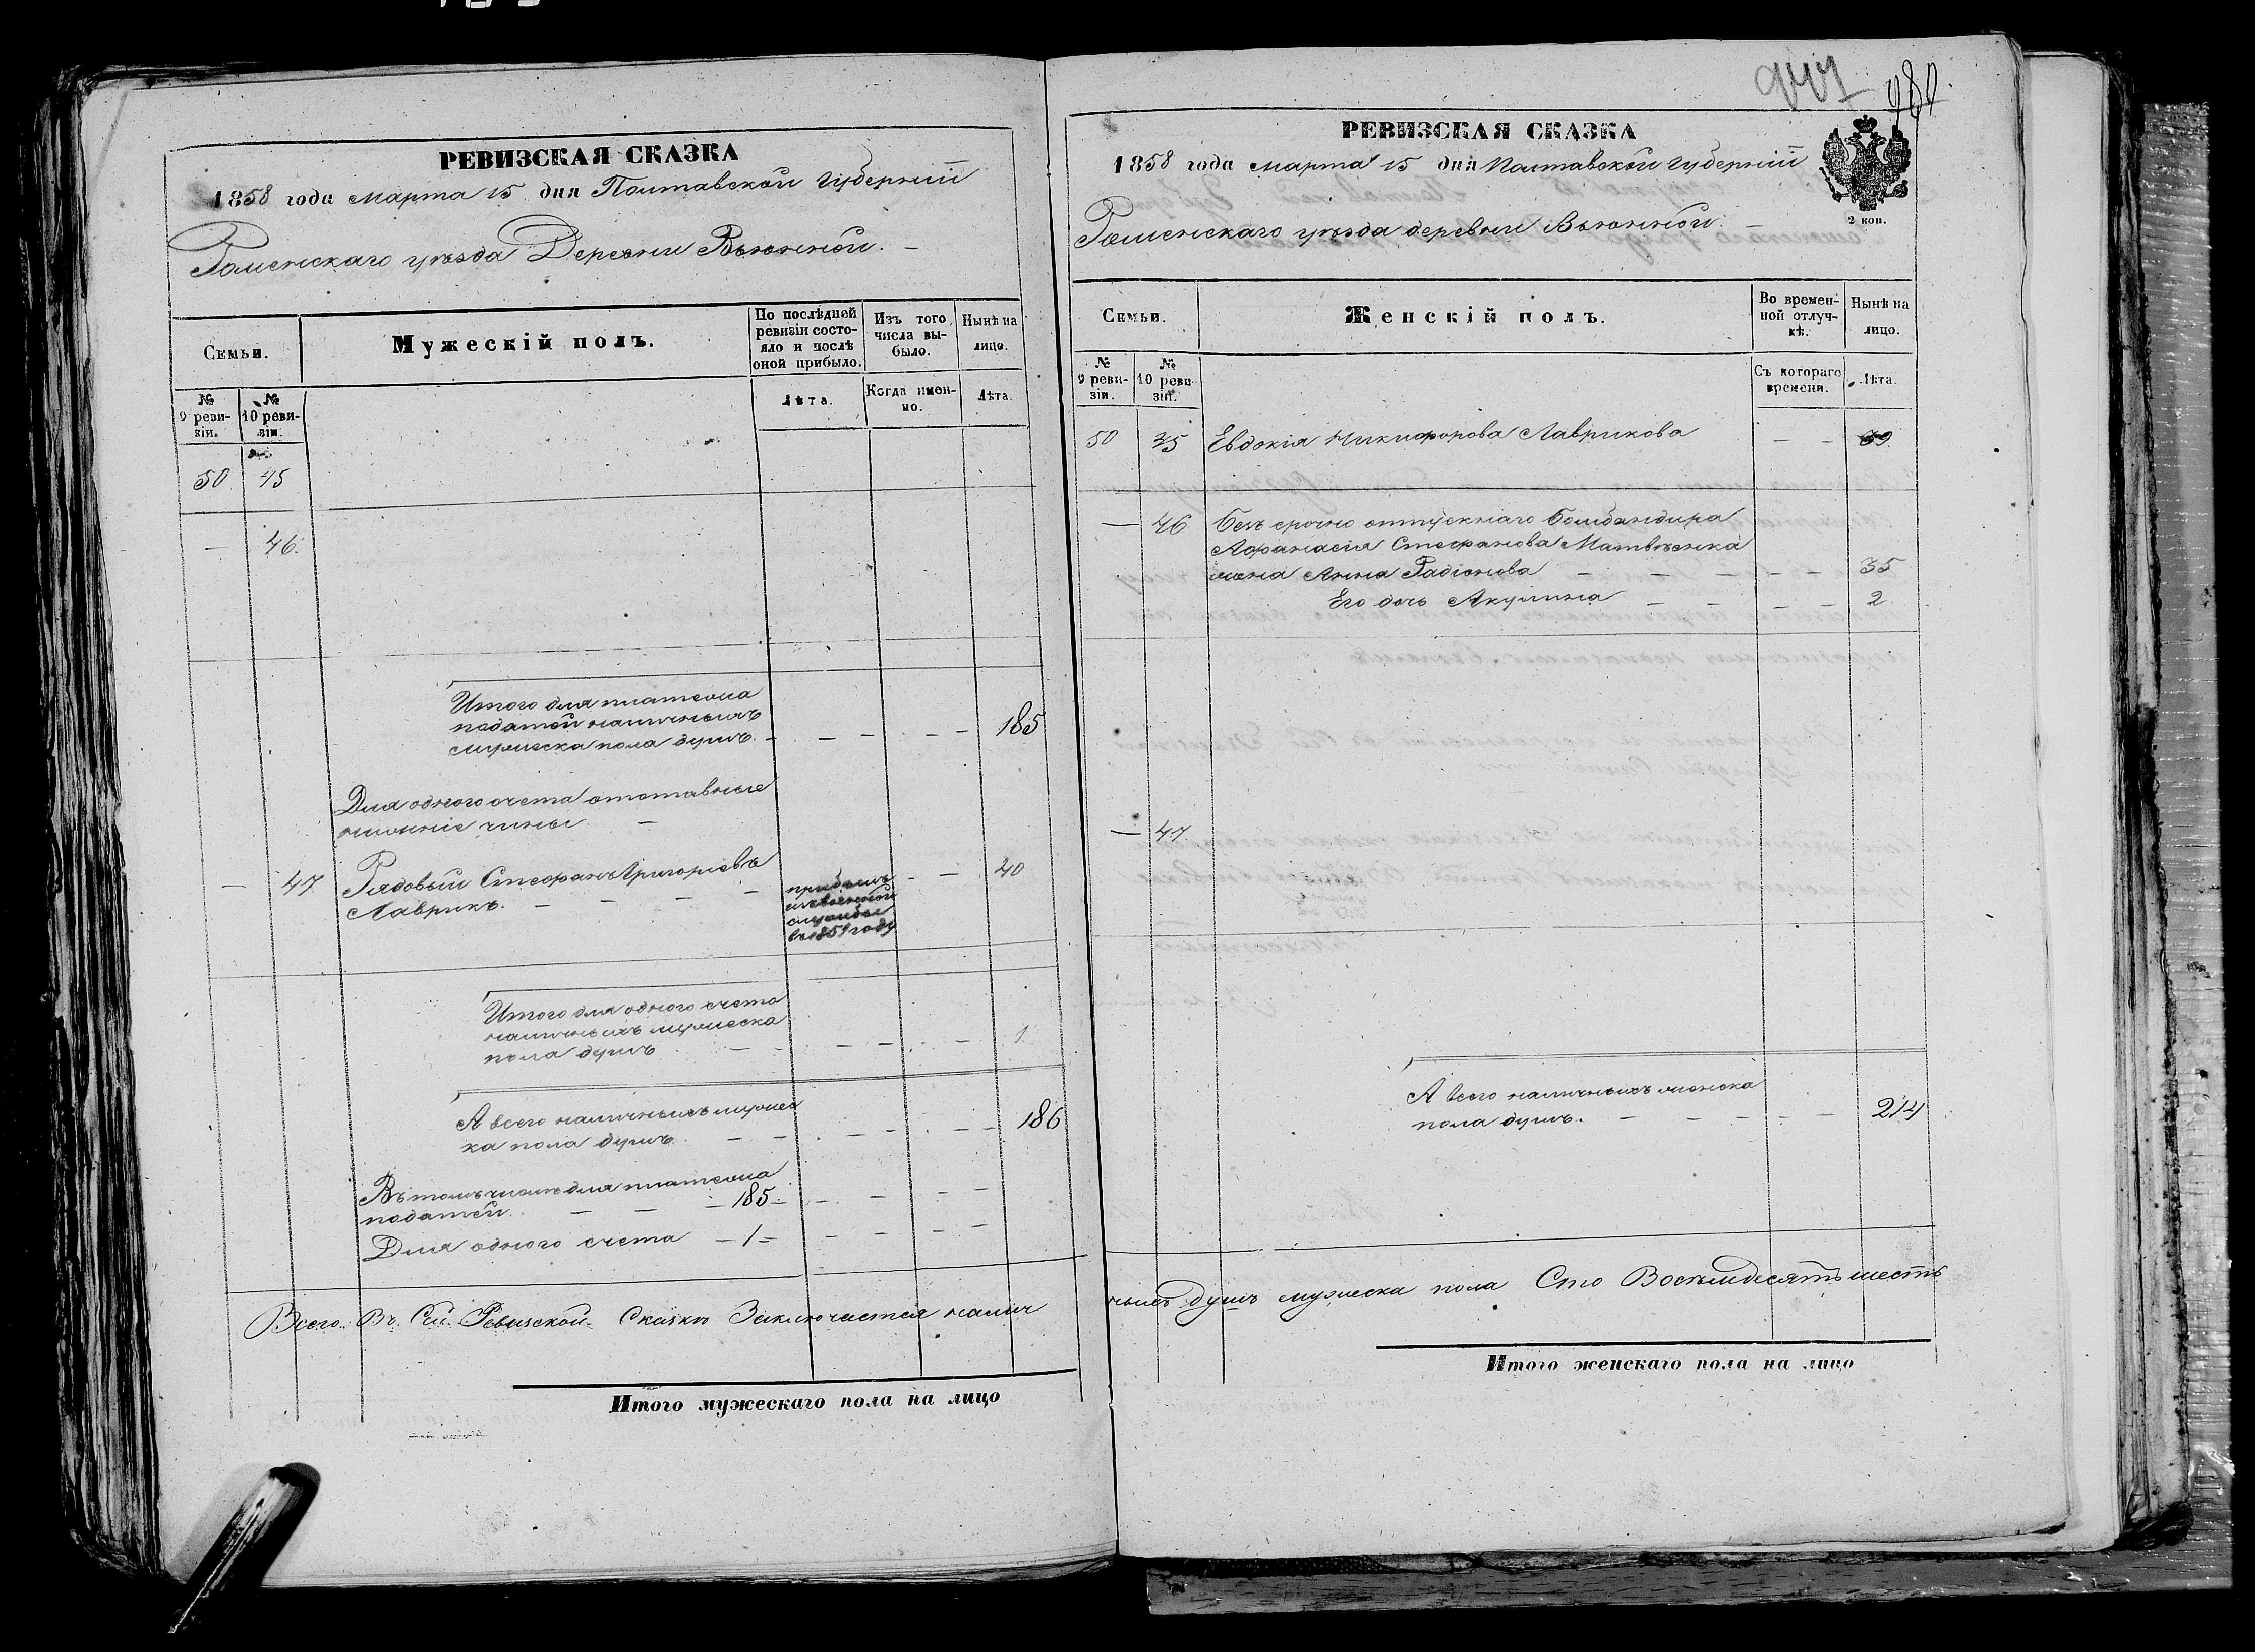 РЕВИЗСКАЯ СКАЗКА
1858 года марта 15 дня Полтавской Губерніи
Роменскаго уѣзда Деревни Вьюнной.
Семьи.
Мужескій полъ.
По послѣдней ревизіи состояло и послѣ оной прибыло.
Изъ того числа выбыло.
Нынѣ на лицо.
№ 9 ревизіи.
№ 10 ревизіи.
Лѣта.
Когда именно.
Лѣта.
50 45
— 46.
Итого для платежа
податей наличныхъ
мужеска пола душъ — — — — — 185
Для одного счета отставные
нижніе чины —
— 47 Рядовый Стефанъ Григорьевъ — — 40
Лаврикъ. — — — —
прибылъ
изъ военной
службы
въ 1851 году
Итого для одного счета
наличныхъ мужеска
пола душъ — — — — — — 1
А всего наличныхъ мужес
ка пола душъ — — — — — — 186
Въ томъ числѣ для платежа
податей — — — 185 — — — — —
Для одного счета — 1 — — — — —
Всего Въ Сей Ревизской Сказкѣ Заключается налич
Итого мужескаго пола на лицо
947
РЕВИЗСКАЯ СКАЗКА
1858 года марта 15 дня Полтавской Губерніи
2 коп.
Роменскаго уѣзда деревни Вьюнной. —
Семьи.
Женскій полъ.
Во временной отлучкѣ.
Нынѣ на лицо.
№ 9 ревизіи.
№ 10 ревизіи.
Съ котораго времени.
Лѣта.
50 45 Евдокія Никифорова Лаврикова — — 39
— 46 Безъ срочно отпускнаго Бомбандира
Афанасія Стефанова Матвѣенка
жена Анна Радіонова — — — — — 35
Его дочь Акулина — — — — 2
— 47.
А всего наличныхъ женска
пола душъ. — — — — — 214
ныхъ душъ мужеска пола Сто Восемьдесятъ шесть
Итого женскаго пола на лицо